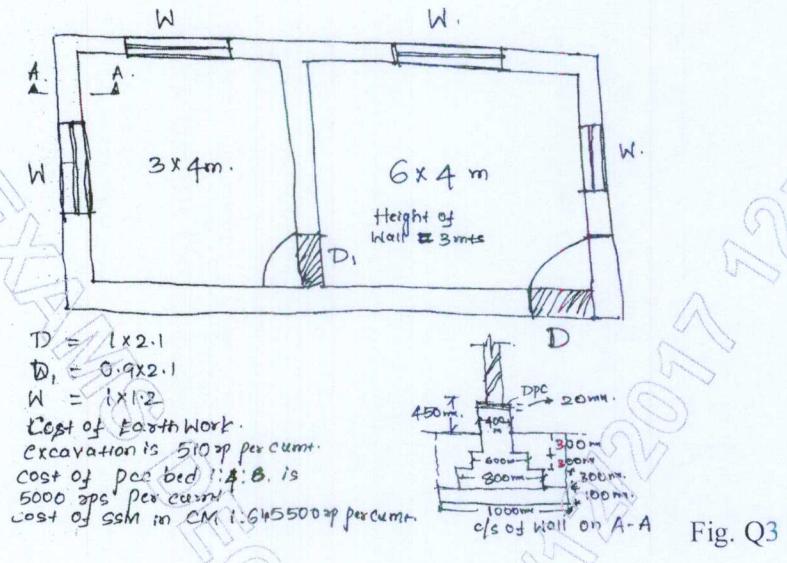 W
W.
A
A.
W
W.
3 x 4 m.
6 x 4 m
Height of
Wall = 3 mts
D1
D
D = 1 x 2.1
D1 = 0.9 x 2.1
W = 1 x 1.2
Cost of Earth Work.
excavation is 510 rp per cumt.
cost of pcc bed 1:4:8. is
5000 rps per cumt
cost of SSM in CM 1:6 is 5500 rp per cumt.
DPC
20mm.
450mm.
400
m
600m
800m
1000mm
300m
300m
300mm.
100mm.
c/s of wall on A-A
Fig. Q3
EXAMS